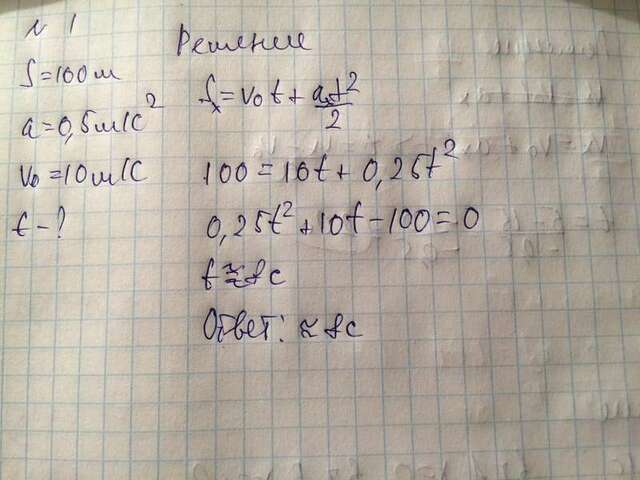 № 1
S=100м
a=0,5м/с²
v₀=10м/с
t-?
Решение
Sₓ=v₀t+aₓt²/2
100=10t+0,25t²
0,25t²+10t-100=0
t≈8с
Ответ: ≈8с